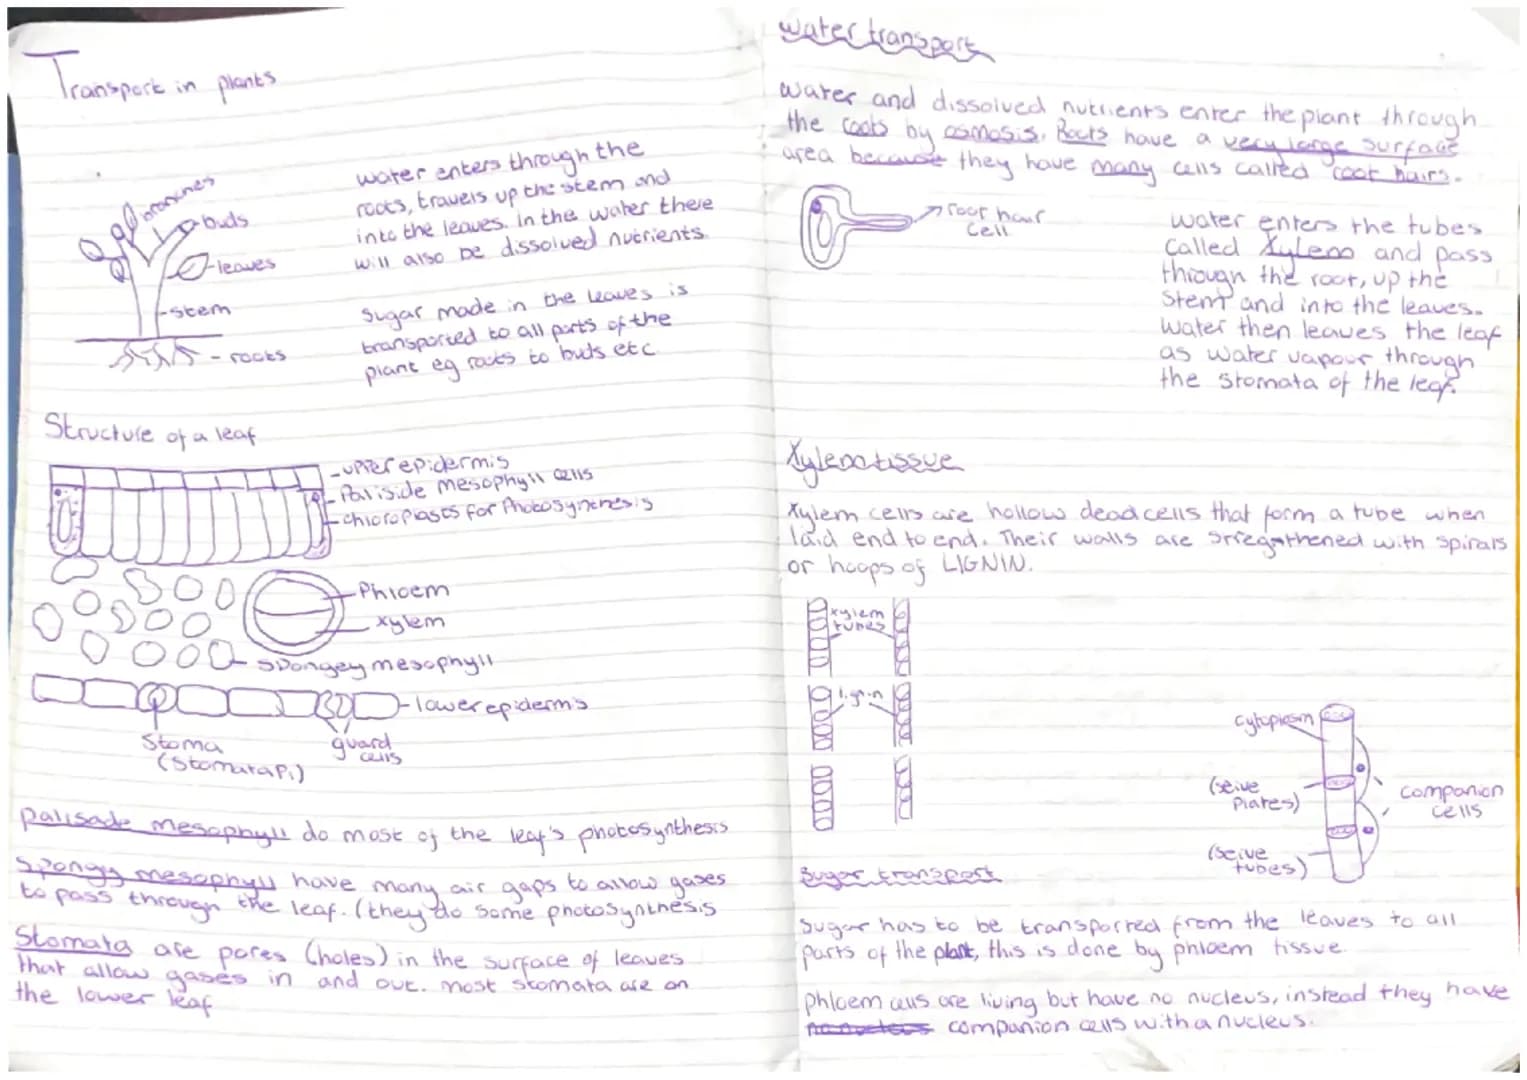 Transport in plants
branches
buds
leaves
stem
- roots
water enters through the
roots, travels up the stem and
into the leaves. In the water there
will also be dissolved nutrients.
Sugar made in the leaves is
transported to all parts of the
plant eg roots to buds etc
Structure of a leaf
- upper epidermis
- Paliside mesophyll cells
- chloroplasts for Photosynthesis
Phloem
xylem
Spongey mesophyll
- lower epidermis
Stoma
(Stomata Pl)
guard
cells
palisade mesophyll do most of the leaf's photosynthesis
Spongy mesophyll have many air gaps to allow gases
to pass through the leaf. (they do some photosynthesis
Stomata are pores (holes) in the surface of leaves
that allow gases in and out. most stomata are on
the lower leaf
water transport
water and dissolved nutrients enter the plant through
the roots by osmosis. Roots have a very large surface
area because they have many cells called root hairs.
root hair
cell
water enters the tubes
called Xylem and pass
through the root, up the
stem and into the leaves.
water then leaves the leaf
as water vapour through
the stomata of the leaf.
Xylem tissue
Xylem cells are hollow dead cells that form a tube when
laid end to end. Their walls are stregnthened with spirals
or hoops of LIGNIN.
xylem
tubes
lignin
cytoplasm
(seive
plates)
companion
cells
(seive
tubes)
Sugar transport
Sugar has to be transported from the leaves to all
parts of the plant, this is done by phloem tissue.
phloem cells are living but have no nucleus, instead they have
no nucleus companion cells with a nucleus.